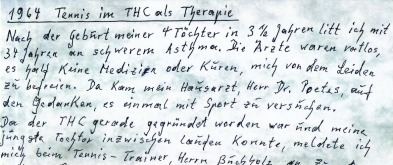 1964 Tennis im THC als Therapie
Nach der Geburt meiner 4 Töchter in 3 ½ Jahren litt ich mit
34 Jahren an schwerem Asthma. Die Ärzte waren ratlos,
es half keine Medizin oder Kuren, mich von dem Leiden
zu befreien. Da kam mein Hausarzt, Herr Dr. Poetes, auf
den Gedanken, es einmal mit Sport zu versuchen.
Da der THC gerade gegründet worden war und meine
jüngste Tochter inzwischen laufen konnte, meldete ich
mich beim Tennis-Trainer, Herrn Buchholz an